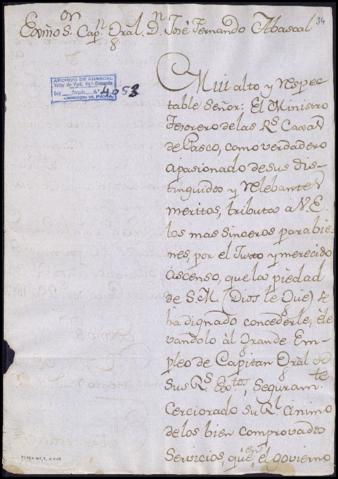 34
Exmo. Sor. Capn. Gral. Dn. José Fernando Abascal
8
ARCHIVO DE ABASCAL
Nº 4053
Mui alto y respec
table Señor: El Ministro
Tesorero de las Rs. Caxas
de Pasco, como verdadero
apasionado de sus dis-
tinguidos y relebantes
meritos, tributa a V.E.
los mas sinceros parabie
nes, por el Justo y merecido
ascenso, que la piedad
de S.M. (Dios le Gue) se
ha dignado concederle, ele
vandolo al Grande Em-
pleo de Capitan Gral. de
sus Rs. Extos, Seguramte
Cerciorado su Rl. animo
de los bien comprovados
Servicios, que en el govierno